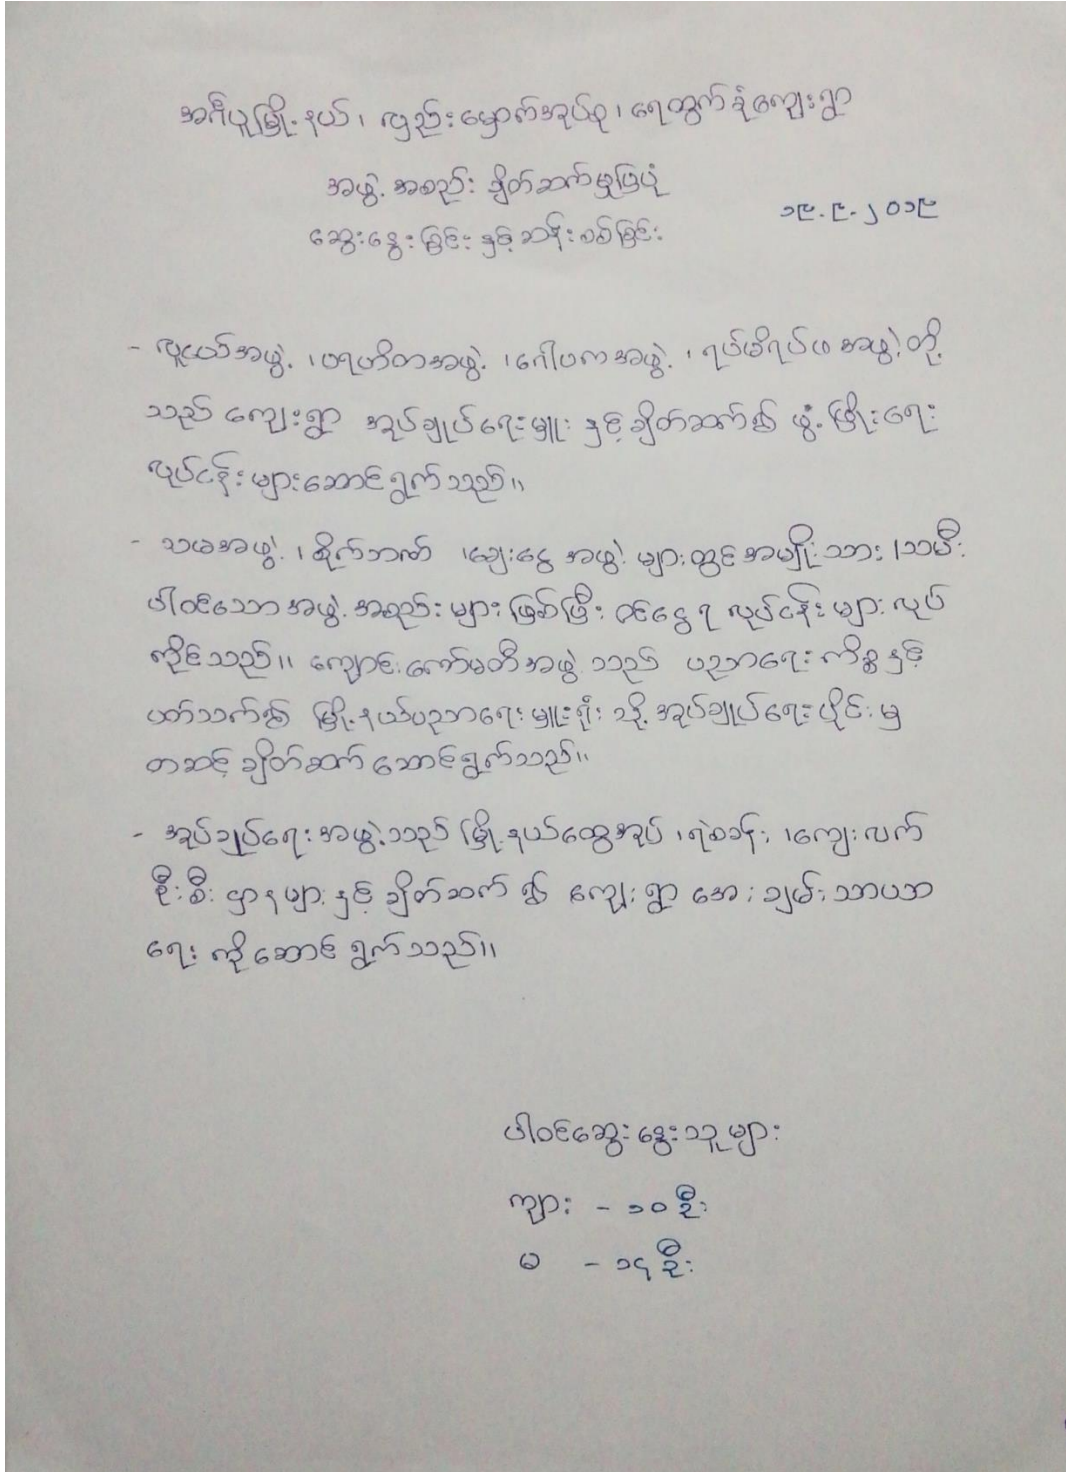 အင်္ဂပူမြို့နယ်၊ လှည်းမှောက်အုပ်စု၊ ရေထွက်ခုံကျေးရွာ
အဖွဲ့အစည်း ချိတ်ဆက်မှုပြပုံ
၁၉.၉.၂၀၁၉
ဆွေးနွေးခြင်း နှင့်ဆန်းစစ်ခြင်း
- လူငယ်အဖွဲ့ ၊ပရဟိတအဖွဲ့ ၊ဂေါပကအဖွဲ့ ၊ ရပ်မိရပ်ဖ အဖွဲ့တို့
သည် ကျေးရွာ အုပ်ချုပ်ရေးမှူး နှင့်ချိတ်ဆက်၍ ဖွံ့ဖြိုးရေး
လုပ်ငန်းများဆောင်ရွက်သည်။
- သမအဖွဲ့ ၊ စိုက်ဘဏ် ၊ချေးငွေ အဖွဲ့ များတွင်အမျိုးသား /သမီး
ပါဝင်သော အဖွဲ့အစည်းများ ဖြစ်ပြီး ဝင်ငွေရ လုပ်ငန်းများ လုပ်
ကိုင်သည်။ ကျောင်းကော်မတီအဖွဲ့ သည် ပညာရေး ကိစ္စနှင့်
ပတ်သက်၍ မြို့နယ်ပညာရေးမှူးရုံး သို့ အုပ်ချုပ်ရေးပိုင်းမှ
တဆင့် ချိတ်ဆက် ဆောင်ရွက်သည်။
- အုပ်ချုပ်ရေးအဖွဲ့သည် မြို့နယ်ထွေအုပ် ၊ရဲစခန်း ၊ကျေးလက်
ဦးစီး ဌာနများနှင့် ချိတ်ဆက် ၍ ကျေးရွာ အေးချမ်းသာယာ
ရေး ကိုဆောင်ရွက်သည်။
ပါဝင်ဆွေးနွေးသူများ
ကျား - ၁၀ဦး
မ - ၁၄ဦး